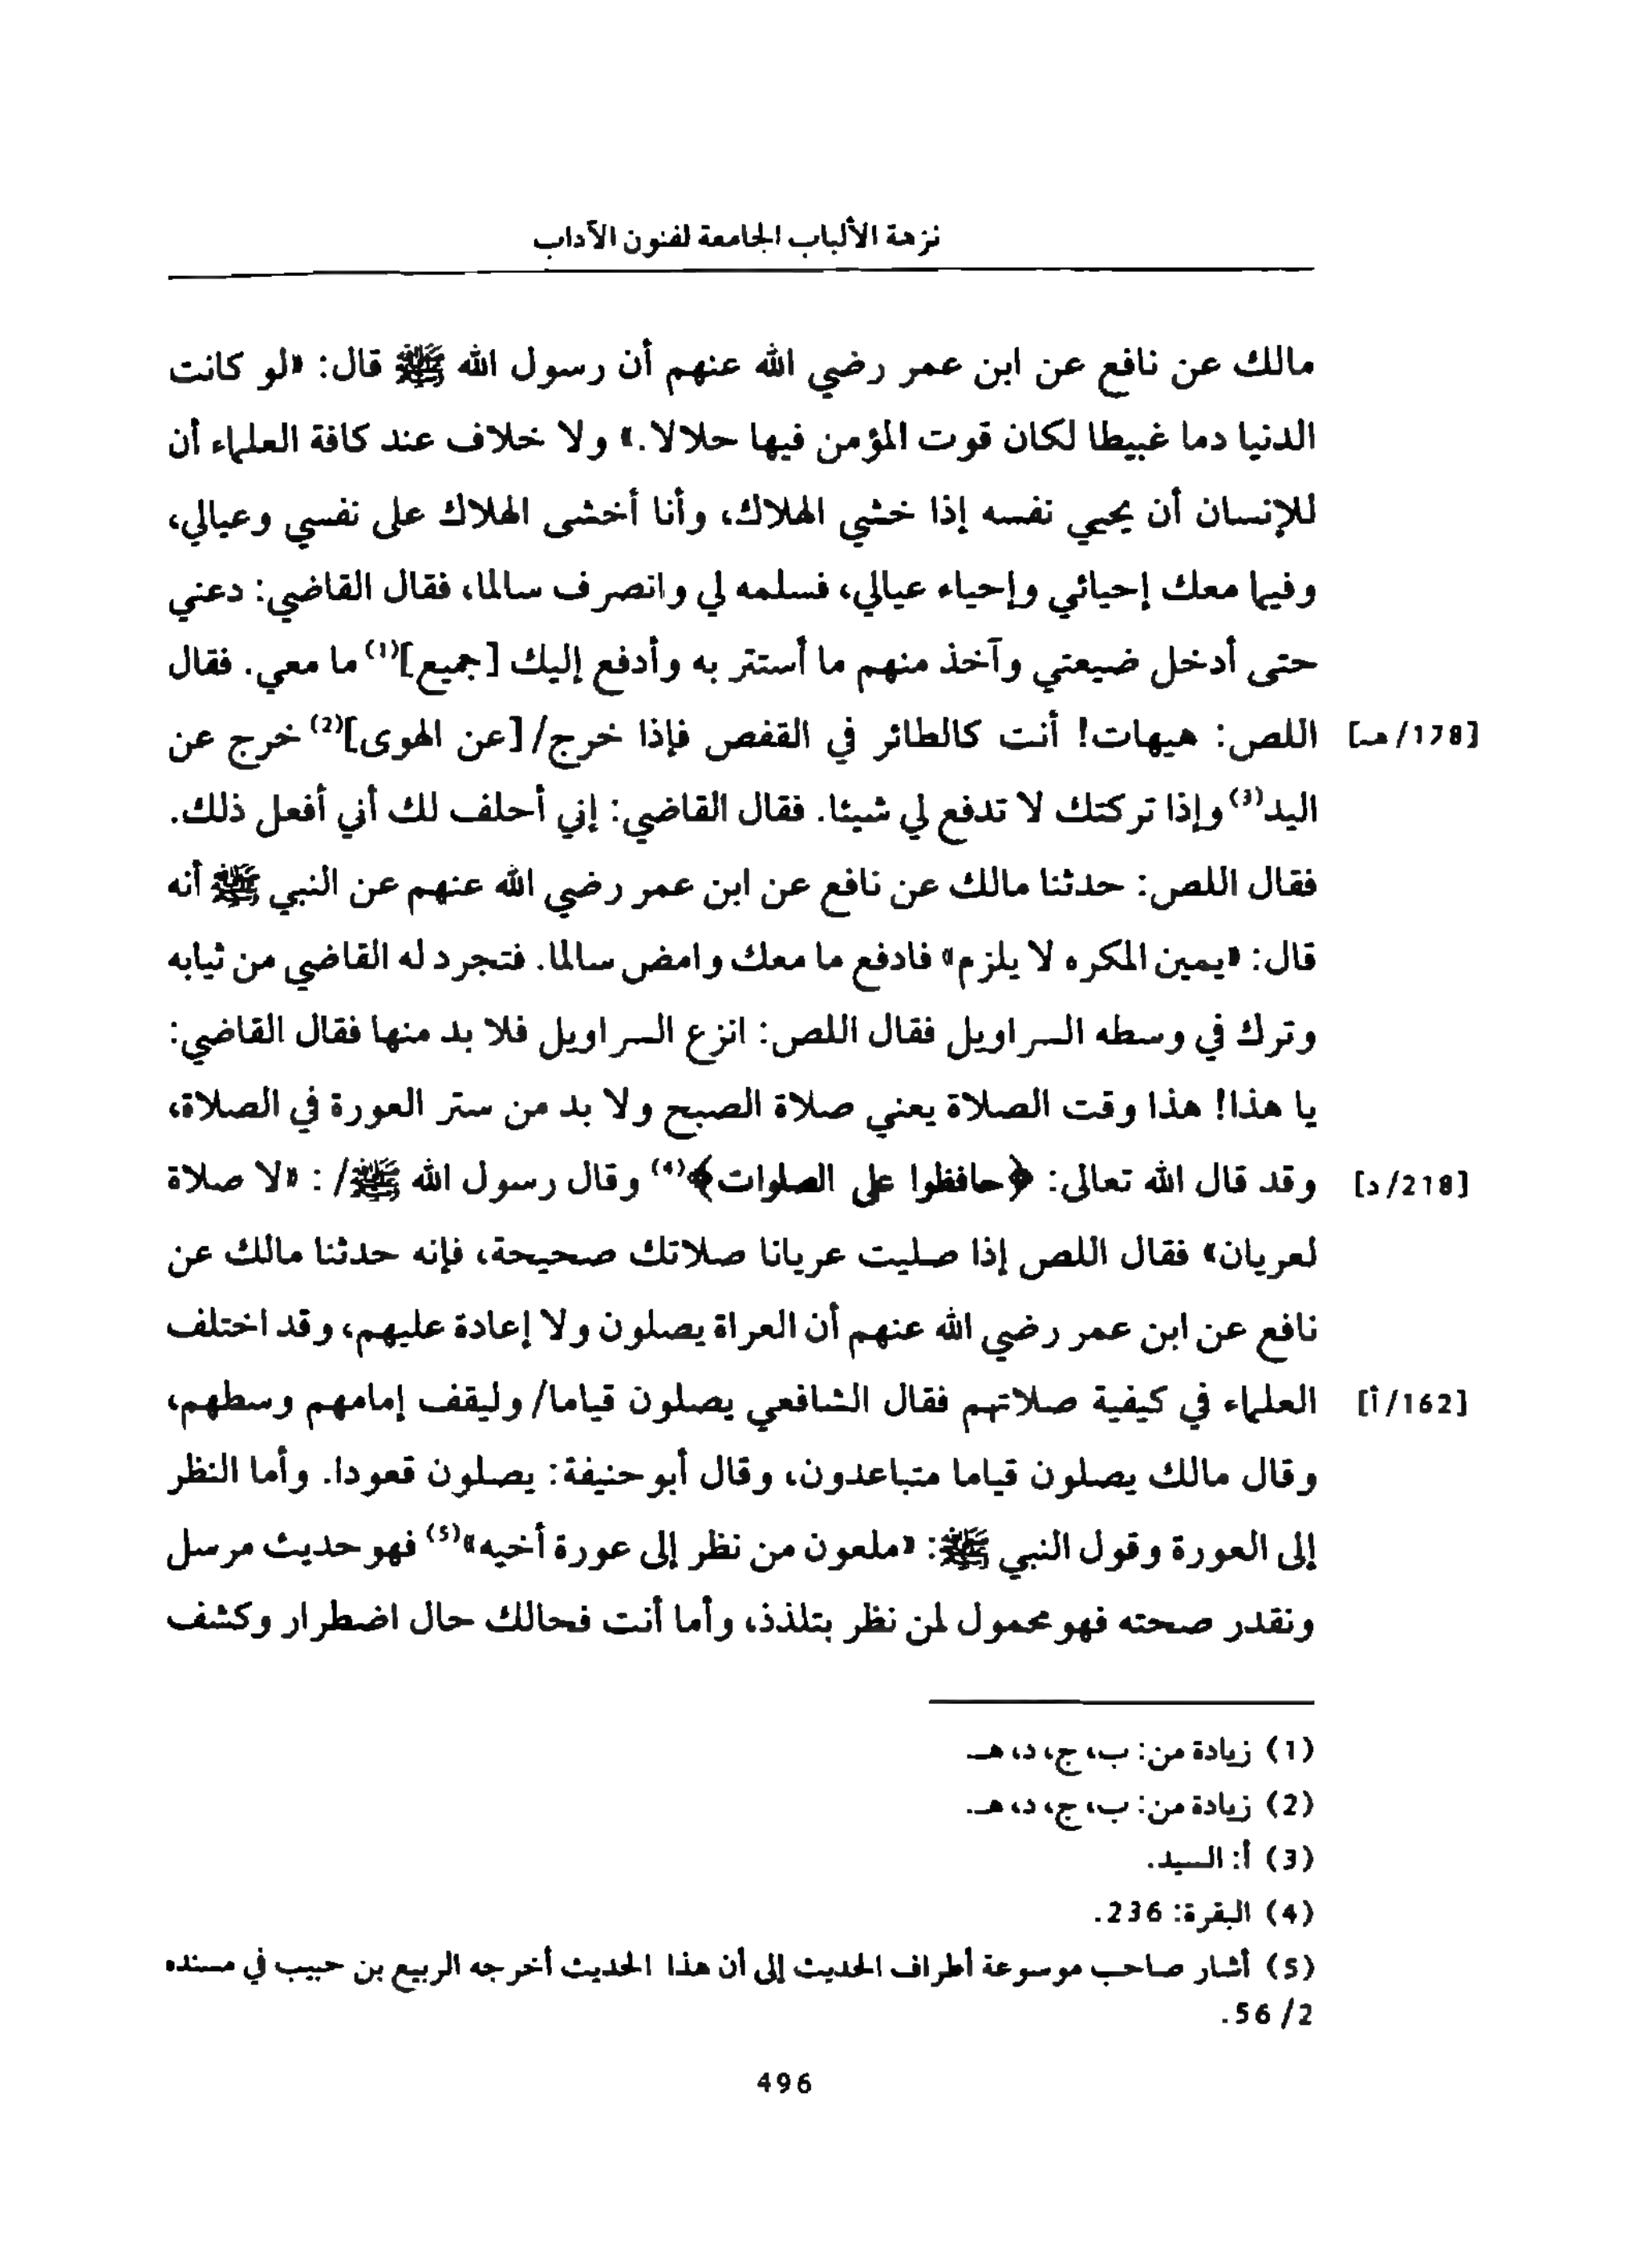 نزهة الألباب الجامعة لفنون الآداب
مالك عن نافع عن ابن عمر رضي الله عنهم أن رسول الله ﷺ قال: «لو كانت
الدنيا دما غبيطا لكان قوت المؤمن فيها حلالا.» ولا خلاف عند كافة العلماء أن
للإنسان أن يحيي نفسه إذا خشي الهلاك، وأنا أخشى الهلاك على نفسي وعيالي،
وفيما معك إحيائي وإحياء عيالي، فسلمه لي وانصرف سالما، فقال القاضي: دعني
حتى أدخل ضيعتي وآخذ منهم ما أستتر به وأدفع إليك [جميع](1) ما معي. فقال
[178/هـ] اللص: هيهات! أنت كالطائر في القفص فإذا خرج/ [عن الهوى](2) خرج عن
اليد(3) وإذا تركتك لا تدفع لي شيئا. فقال القاضي: إني أحلف لك أني أفعل ذلك.
فقال اللص: حدثنا مالك عن نافع عن ابن عمر رضي الله عنهم عن النبي ﷺ أنه
قال: «يمين المكره لا يلزم» فادفع ما معك وامض سالما. فتجرد له القاضي من ثيابه
وترك في وسطه السراويل فقال اللص: انزع السراويل فلا بد منها فقال القاضي:
يا هذا! هذا وقت الصلاة يعني صلاة الصبح ولا بد من ستر العورة في الصلاة،
[218/د] وقد قال الله تعالى: ﴿حافظوا على الصلوات﴾(4) وقال رسول الله ﷺ/ : «لا صلاة
لعريان» فقال اللص إذا صليت عريانا صلاتك صحيحة، فإنه حدثنا مالك عن
نافع عن ابن عمر رضي الله عنهم أن العراة يصلون ولا إعادة عليهم، وقد اختلف
[162/أ] العلماء في كيفية صلاتهم فقال الشافعي يصلون قياما/ وليقف إمامهم وسطهم،
وقال مالك يصلون قياما متباعدون، وقال أبو حنيفة: يصلون قعودا. وأما النظر
إلى العورة وقول النبي ﷺ: «ملعون من نظر إلى عورة أخيه»(5) فهو حديث مرسل
ونقدر صحته فهو محمول لمن نظر بتلذذ، وأما أنت فحالك حال اضطرار وكشف
(1) زيادة من: ب، ج، د، هـ
(2) زيادة من: ب، ج، د، هـ.
(3) أ: السيد.
(4) البقرة: 236.
(5) أشار صاحب موسوعة أطراف الحديث إلى أن هذا الحديث أخرجه الربيع بن حبيب في مسنده
2/ 56.
496